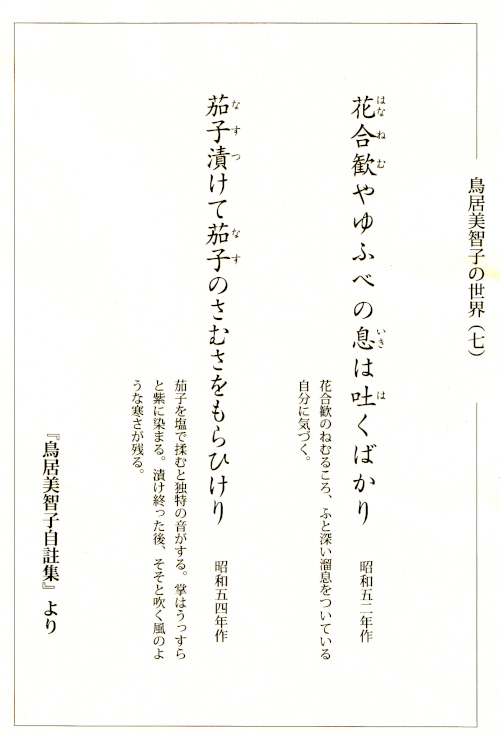 鳥居美智子の世界(七)
花合歓やゆふべの息は吐くばかり
はな ねむ いき は
昭和五二年作
花合歓のねむるころ、ふと深い溜息をついている
自分に気づく。
茄子漬けて茄子のさむさをもらひけり
なすつ なす
昭和五四年作
茄子を塩で揉むと独特の音がする。掌はうっすら
と紫に染まる。漬け終った後、そそと吹く風のよ
うな寒さが残る。
『鳥居美智子自註集』より